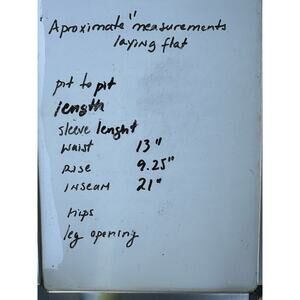 Aproximate" measurements
laying flat
pit to pit
length
sleeve lenght
waist 13"
Rise 9.25"
inseam 21"
hips
leg opening